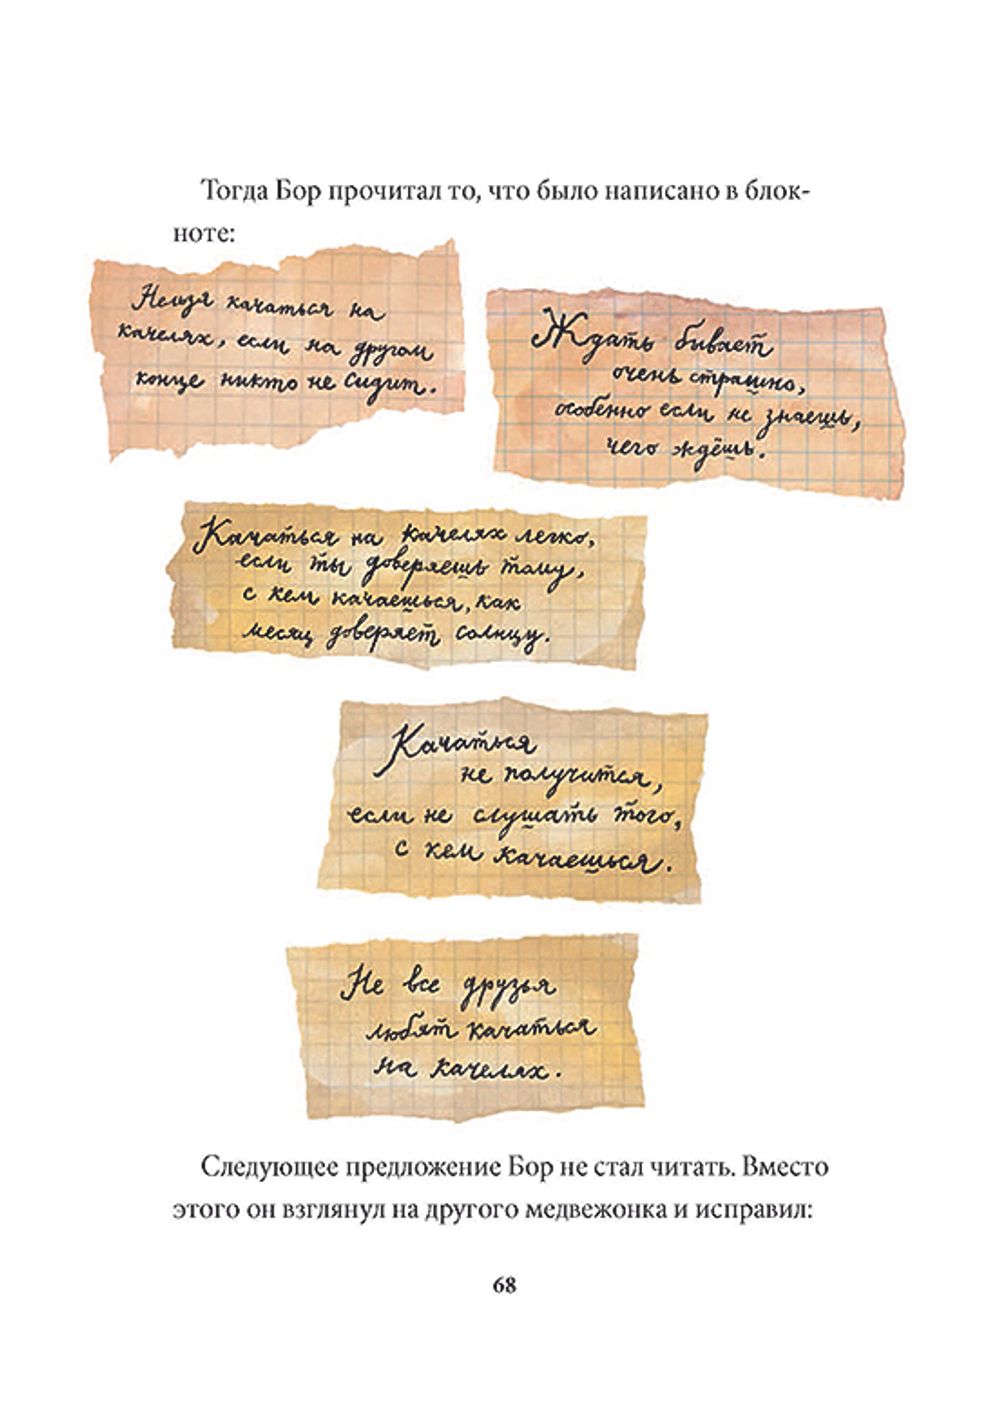 Тогда Бор прочитал то, что было написано в блок-
ноте:
Нельзя качаться на
качелях, если на другом
конце никто не сидит.
Ждать бывает
очень страшно,
особенно если не знаешь,
чего ждёшь.
Качаться на качелях легко,
если ты доверяешь тому,
с кем качаешься, как
месяц доверяет солнцу.
Качаться
не получится,
если не слушать того,
с кем качаешься.
Не все друзья
любят качаться
на качелях.
Следующее предложение Бор не стал читать. Вместо
этого он взглянул на другого медвежонка и исправил:
68